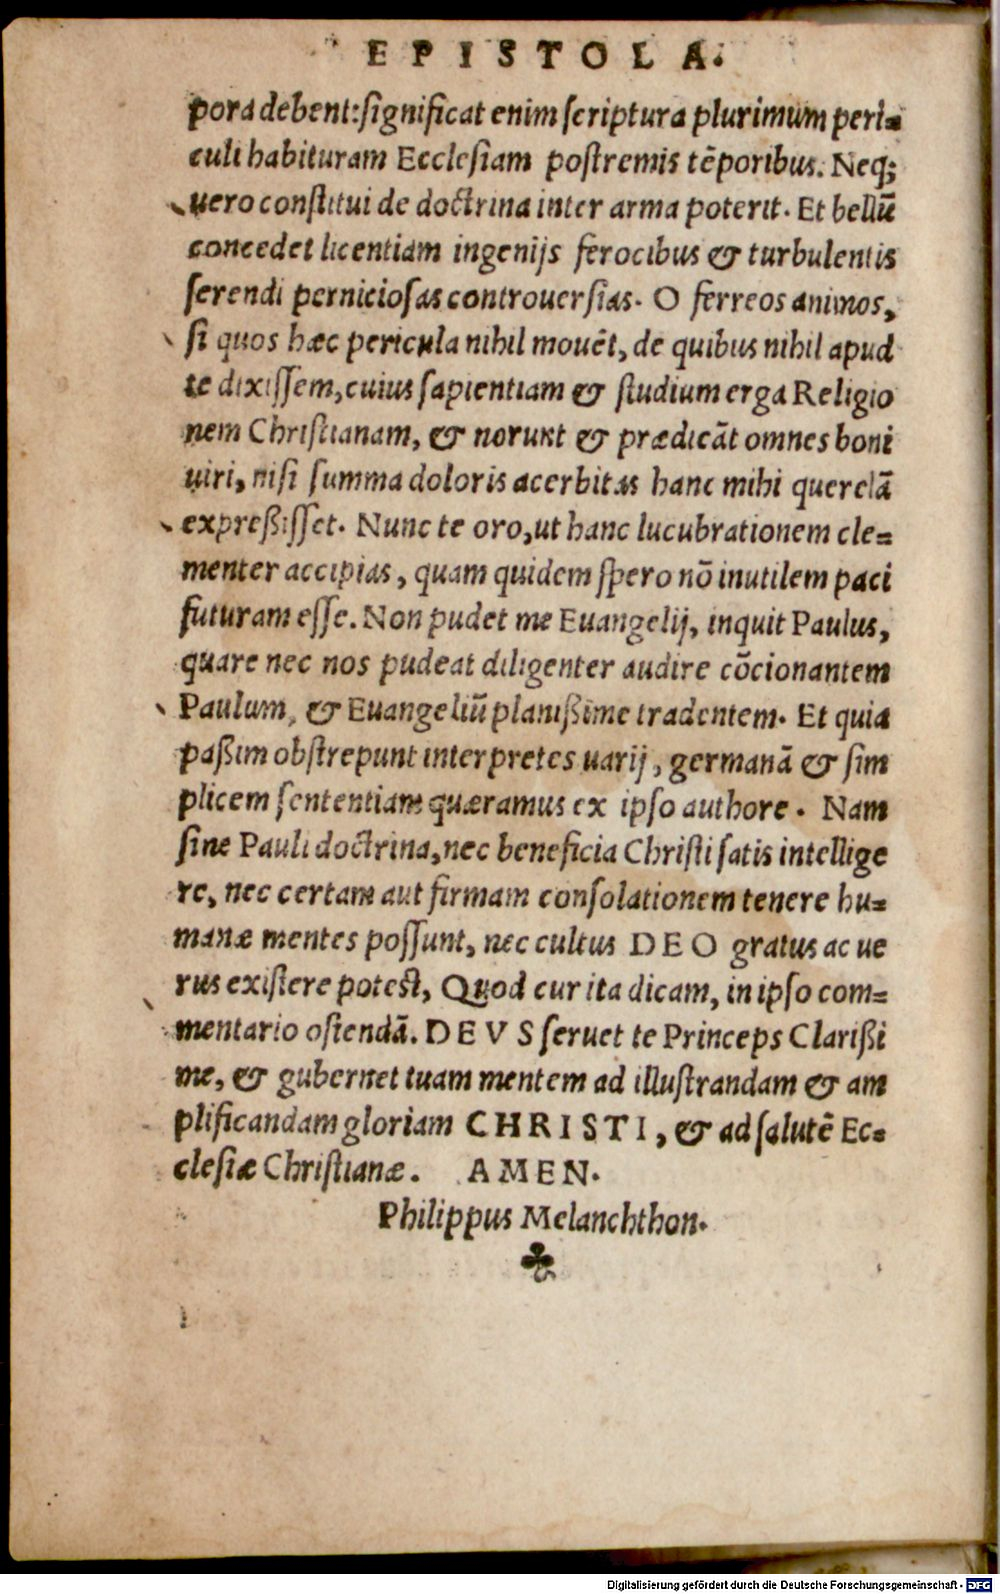 EPISTOLA.
pora debent: significat enim scriptura plurimum peri=
culi habituram Ecclesiam postremis tēporibus. Neq;
uero constitui de doctrina inter arma poterit. Et bellū
concedet licentiam ingenijs ferocibus & turbulentis
serendi perniciosas controuersias. O ferreos animos,
si quos hæc pericula nihil mouēt, de quibus nihil apud
te dixissem, cuius sapientiam & studium erga Religio
nem Christianam, & norunt & prædicāt omnes boni
uiri, nisi summa doloris acerbitas hanc mihi querelā
expreßisset. Nunc te oro, ut hanc lucubrationem cle=
menter accipias, quam quidem spero nō inutilem paci
futuram esse. Non pudet me Euangelij, inquit Paulus,
quare nec nos pudeat diligenter audire cōcionantem
Paulum, & Euangeliū planißime tradentem. Et quia
paßim obstrepunt interpretes uarij, germanā & sim
plicem sententiam quæramus ex ipso authore. Nam
sine Pauli doctrina, nec beneficia Christi satis intellige
re, nec certam aut firmam consolationem tenere hu=
manæ mentes possunt, nec cultus DEO gratus ac ue
rus existere potest, Quod cur ita dicam, in ipso com=
mentario ostendā. DEVS seruet te Princeps Clarißi
me, & gubernet tuam mentem ad illustrandam & am
plificandam gloriam CHRISTI, & ad salutē Ec=
clesiæ Christianæ. AMEN.
Philippus Melanchthon.
Digitalisierung gefördert durch die Deutsche Forschungsgemeinschaft - DFG